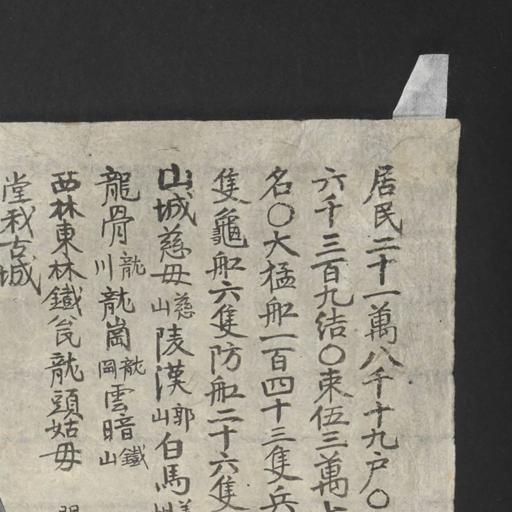 居民二十一萬八千十九戶〇
六千三百九結〇束伍三萬
名〇大猛船一百四十三隻兵
隻龜船六隻防船二十六隻
山城慈母慈山陵漢郭山白馬
龍骨龍川龍崗龍岡雲暗鐵山
西林東林鐵瓮龍頭姑母
堂我古城